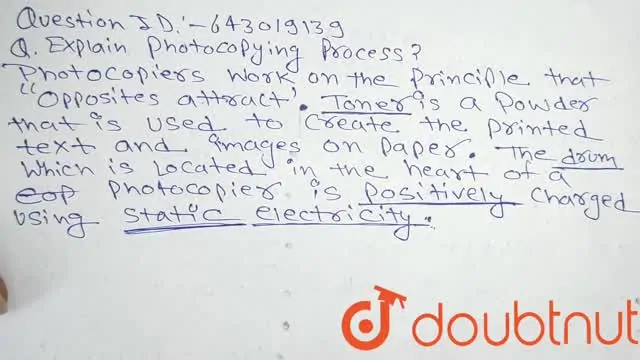 Question ID:-643019139
Q. Explain Photocopying Process?
Photocopiers work on the principle that
"Opposites attract'. Toner is a powder
that is used to create the printed
text and images on paper. The drum
which is located in the heart of a
cop photocopier is positively charged
using static electricity.
doubtnut